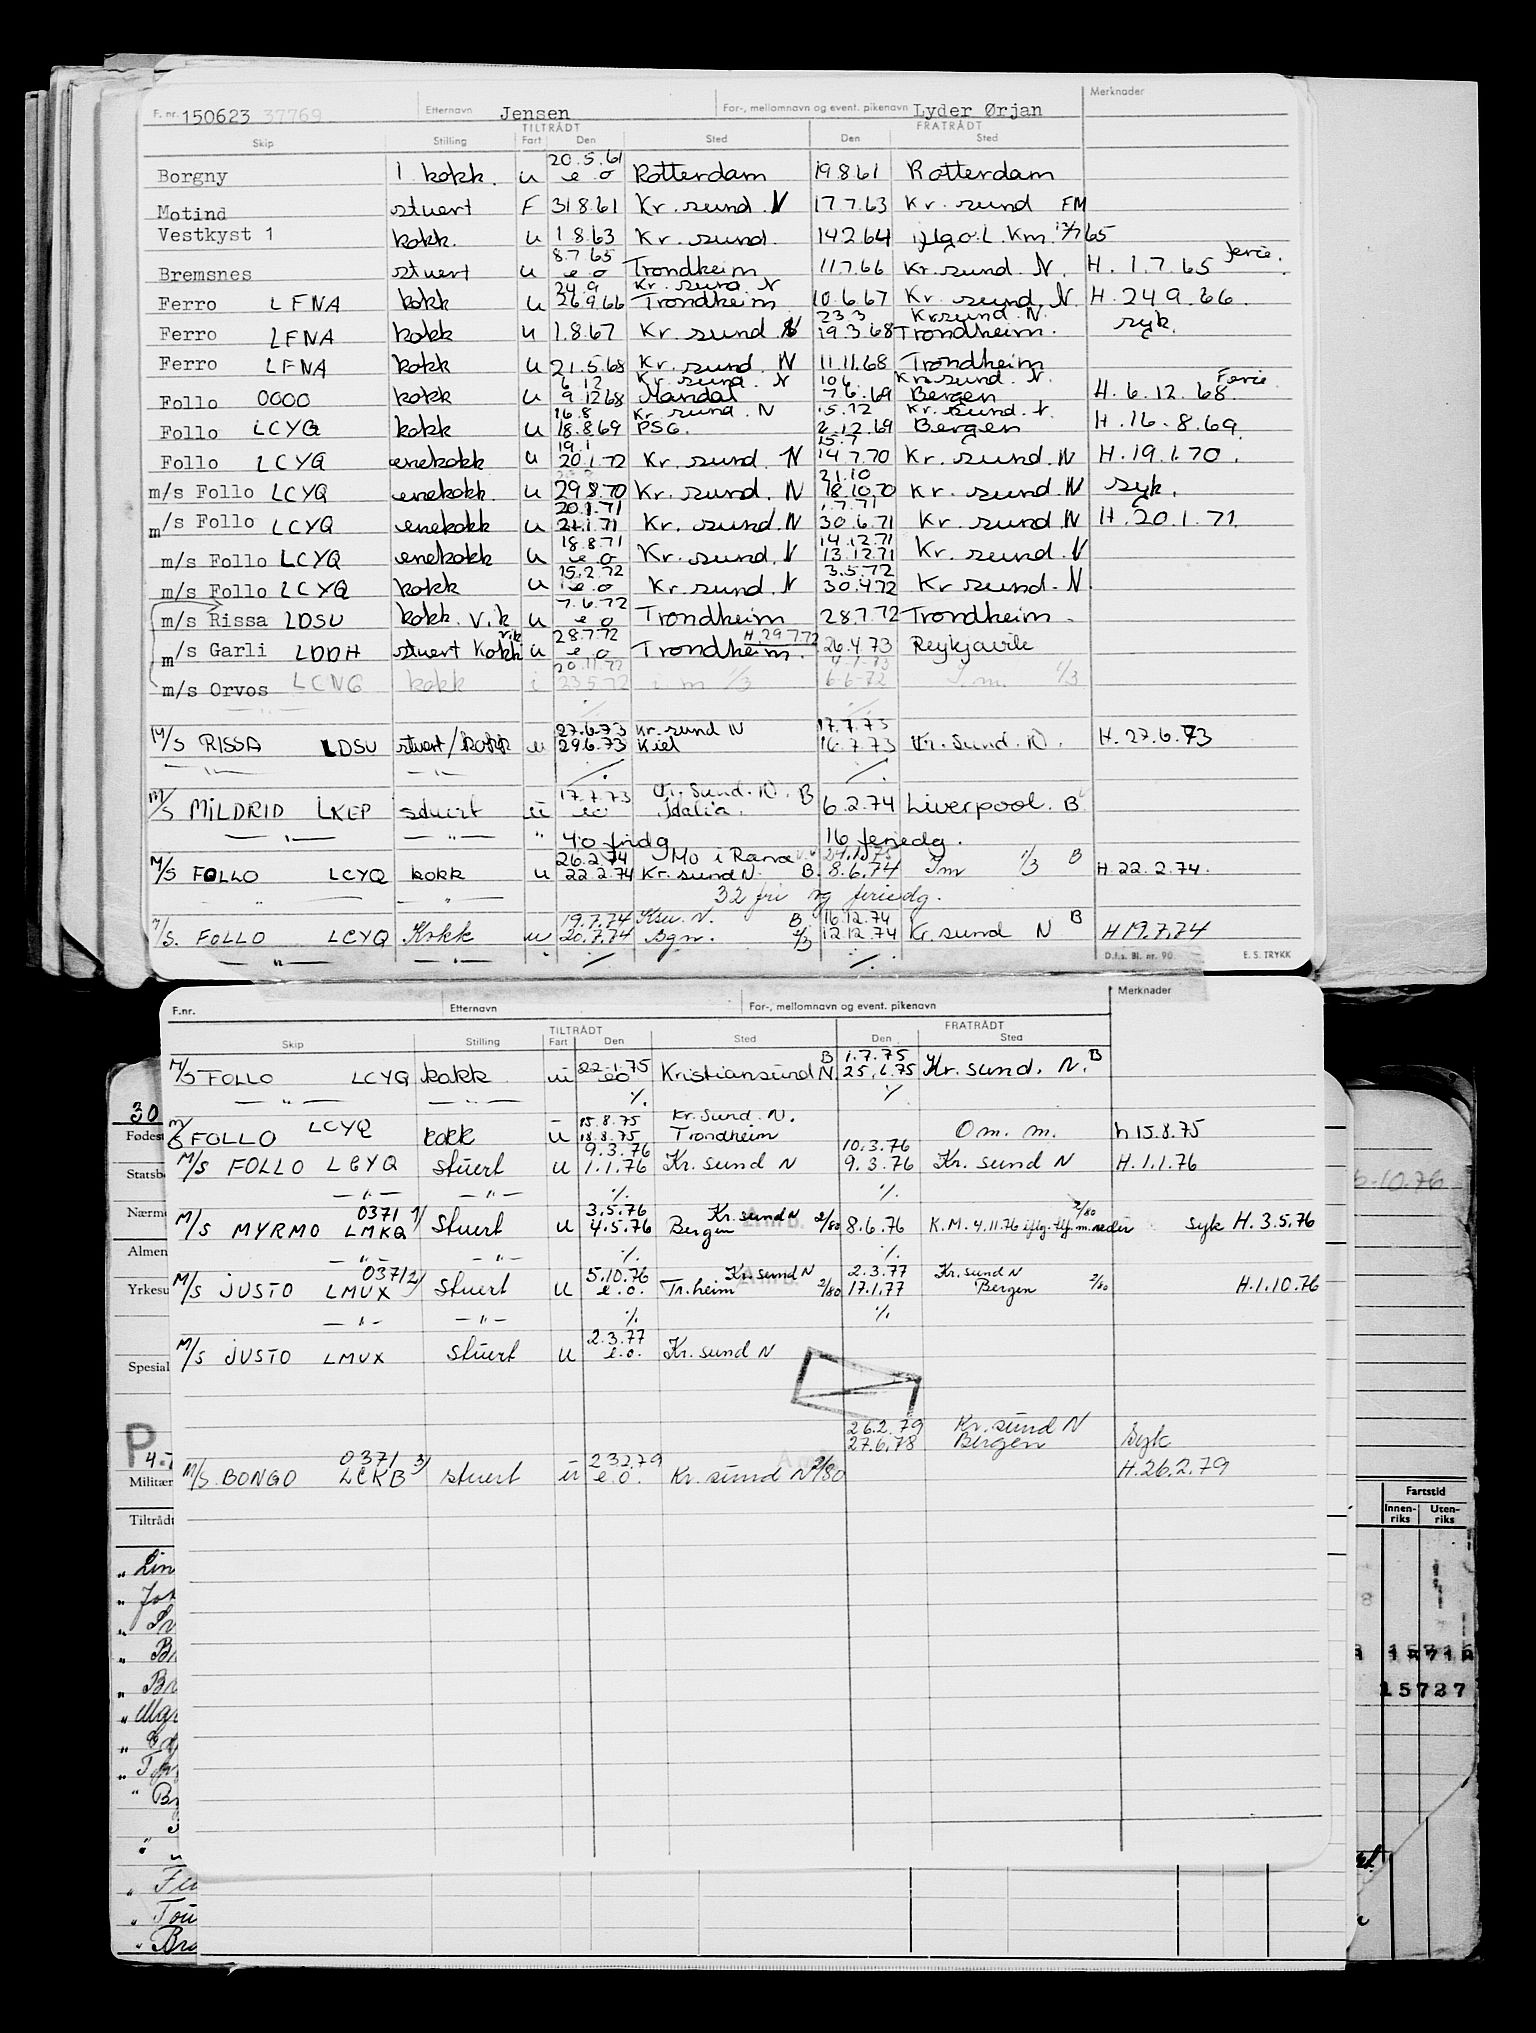 F. nr. 150623 37769 Etternavn Jensen For-, mellomnavn og event. pikenavn Lyder Ørjan Merknader
TILTRÅDT FRATRÅDT
Skip Stilling Fart Den Sted Den Sted
20.5.61
Borgny 1 kokk. u e o Rotterdam 19861 Rotterdam
Motind stuert F 31861 Kr. sund. N 17.7.63 Kr. sund FM
Vestkyst 1 kokk. u 1.8.63 Kr. sund. 14264 Km 12/7 65
8.7.65 ferie.
Bremsnes stuert u e o Trondheim 11766 Kr. sund. N. H. 1.7.65
24.9 Kr. sund. N
Ferro LFNA kokk u 26966 Trondheim 10.6.67 Kr. sund. N H. 24.9.66.
23.3 Kr sund. N.
Ferro LFNA kokk u 1.8.67 Kr sund N 19.3.68 Trondheim. syk.
Ferro LFNA kokk u 21.5.68 Kr. sund. N 11.11.68 Trondheim
6.12 Kr. sund. N 10.6. Kr. sund. N. Ferie
Follo OOOO kokk u 9.1268 Mandal 7.6.69 Bergen H. 6.12.68.
16.8 Kr. sund. N 5.12 Kr. sund. N.
Follo LCYQ kokk u 18.8.69 PSG. 2.12.69 Bergen H. 16.8.69.
19.1 15.7
Follo LCYQ enekokk u 20.1.72 Kr. sund. N 14.7.70 Kr. sund. N H. 19.1.70.
21.10
m/s Follo LCYQ enekokk. u 29870 Kr. sund. N 18.10.70 Kr. sund. N syk.
20.1.71 1.7.71
m/s Follo LCYQ enekokk u 21.1.71 Kr. sund. N 30.6.71 Kr. sund N H. 20.1.71.
18.8.71 14.12.71
m/s Follo LCYQ enekokk u e o Kr. sund. N 13.12.71 Kr. sund. N
15.2.72 3.5.72
m/s Follo LCYQ kokk u e o Kr. sund. N 30.4.72 Kr. sund. N.
7.6.72
m/s Rissa LDSU kokk. v.k u e o Trondheim 28.7.72 Trondheim.
vik 28.7.72 H. 29.7.72
m/s Garli LDDH stuert kokk u e o Trondheim. 26.4.73 Reykjavik
20.11.72
m/s Orvos LCNG kokk i 23.5.72 i m 1/3 6.6.72 I. m. 1/3
27.6.73 Kr. sund N 17.7.73
M/S RISSA LDSU stuert/kokk u 29.6.73 Kiel 16.7.73 Kr. Sund. N. H. 27.6.73
— " — — " — ./. ./.
17.7.73 Kr. Sund. N. B
M/S MILDRID LKEP stuert u eo Idalia. 6.2.74 Liverpool. B
— " — — " — " 40 fridg 16 feriedg.
26.2.74 Mo i Rana
M/S FOLLO LCYQ kokk u 22.2.74 Kr. sund N. B. 8.6.74 I m 1/3 B H. 22.2.74.
" " 32 fri og feriedg.
19.7.74 Ksu. N. B 16.12.74 B
M/S. FOLLO LCYQ Kokk u 20.7.74 Bgn. 2/3 12.12.74 Kr. sund N H 19.7.74
— " — — " — ./. ./. D.f.s. Bl. nr. 90 E. S. TRYKK
F.nr. Etternavn For-, mellomnavn og event. pikenavn Merknader
TILTRÅDT FRATRÅDT
Skip Stilling Fart Den Sted Den Sted
22.1.75 B 1.7.75 B
M/S FOLLO LCYQ kokk u eo Kristiansund N. 25.6.75 Kr. sund. N.
— " — — " — ./. ./.
15.8.75 Kr. Sund. N.
M/S FOLLO LCYQ kokk u 18.8.75 Trondheim Om. m. h 15.8.75
9.3.76 10.3.76
M/S FOLLO LCYQ stuert u 1.1.76 Kr. sund N 9.3.76 Kr. sund N H. 1.1.76
— " — — " — ./. ./.
0371 1/ 3.5.76 Kr. sund N 2/80
M/S MYRMO LMKQ Stuert u 4.5.76 Bergen 2/80 8.6.76 K.M. 4.11.76 iflg. tlf. m. reder syk H. 3.5.76
— " — — " — ./. ./.
0371 2/ 5.10.76 Kr. sund N 2.3.77 Kr. sund N
M/S JUSTO LMUX Stuert u e.o. Tr.heim 2/80 17.1.77 Bergen 2/80 H. 1.10.76
— " — — " — ./. ./.
2.3.77
M/S JUSTO LMUX Stuert u e.o. Kr. sund N
26.2.79 Kr. sund N
27.6.78 Bergen Syk
0371 3/ 23279
M/S. BONGO LCKB stuert u e.o. Kr. sund N 2/80 H. 26.2.79
30
Fødes
Statsb
Nærm
Almen
Yrkesu
Spesial
P
4.7
Militær
Tiltrådt
Fartstid
Innen-riks Uten-riks
15716
15727